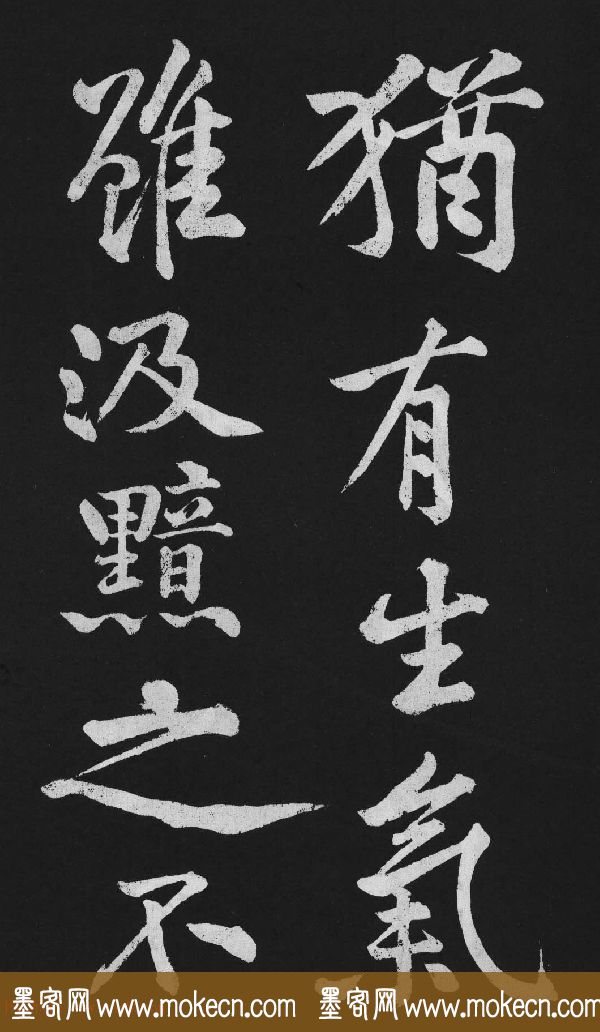 猶有生氣
雖汲黯之不
墨客网 www.mokecn.com 墨客网 www.mokecn.com